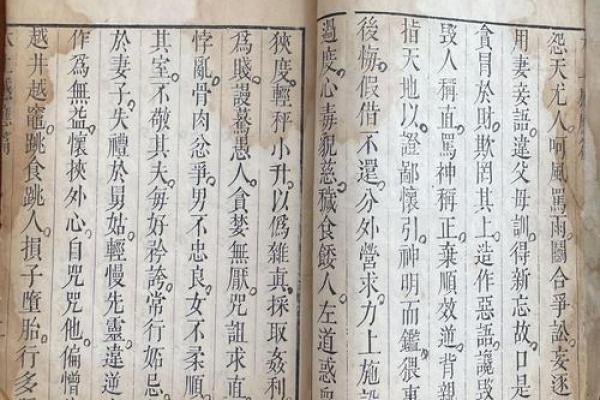 怨天尤人。呵風罵雨。鬭合爭訟。妄逐
用妻妾語。違父母訓。得新忘故。口是
貪冒於財。欺罔其上。造作惡語。讒毀
毀人稱直。罵神稱正。棄順效逆。背親
指天地以證鄙懷。引神明而鑑猥事
後悔。假借不還。分外營求。力上施設
過度。心毒貌慈。穢食餧人。左道惑
狹度。輕秤小升。以僞雜真。採取姦利
爲賤。謾驀愚人。貪婪無厭。咒詛求直
悖亂。骨肉忿爭。男不忠良。女不柔順
其室。不敬其夫。每好矜誇。常行妬忌
於妻子。失禮於舅姑。輕慢先靈。違逆
作爲無益。懷挾外心。自咒咒他。偏憎
越井越竈。跳食跳人。損子墮胎。行多